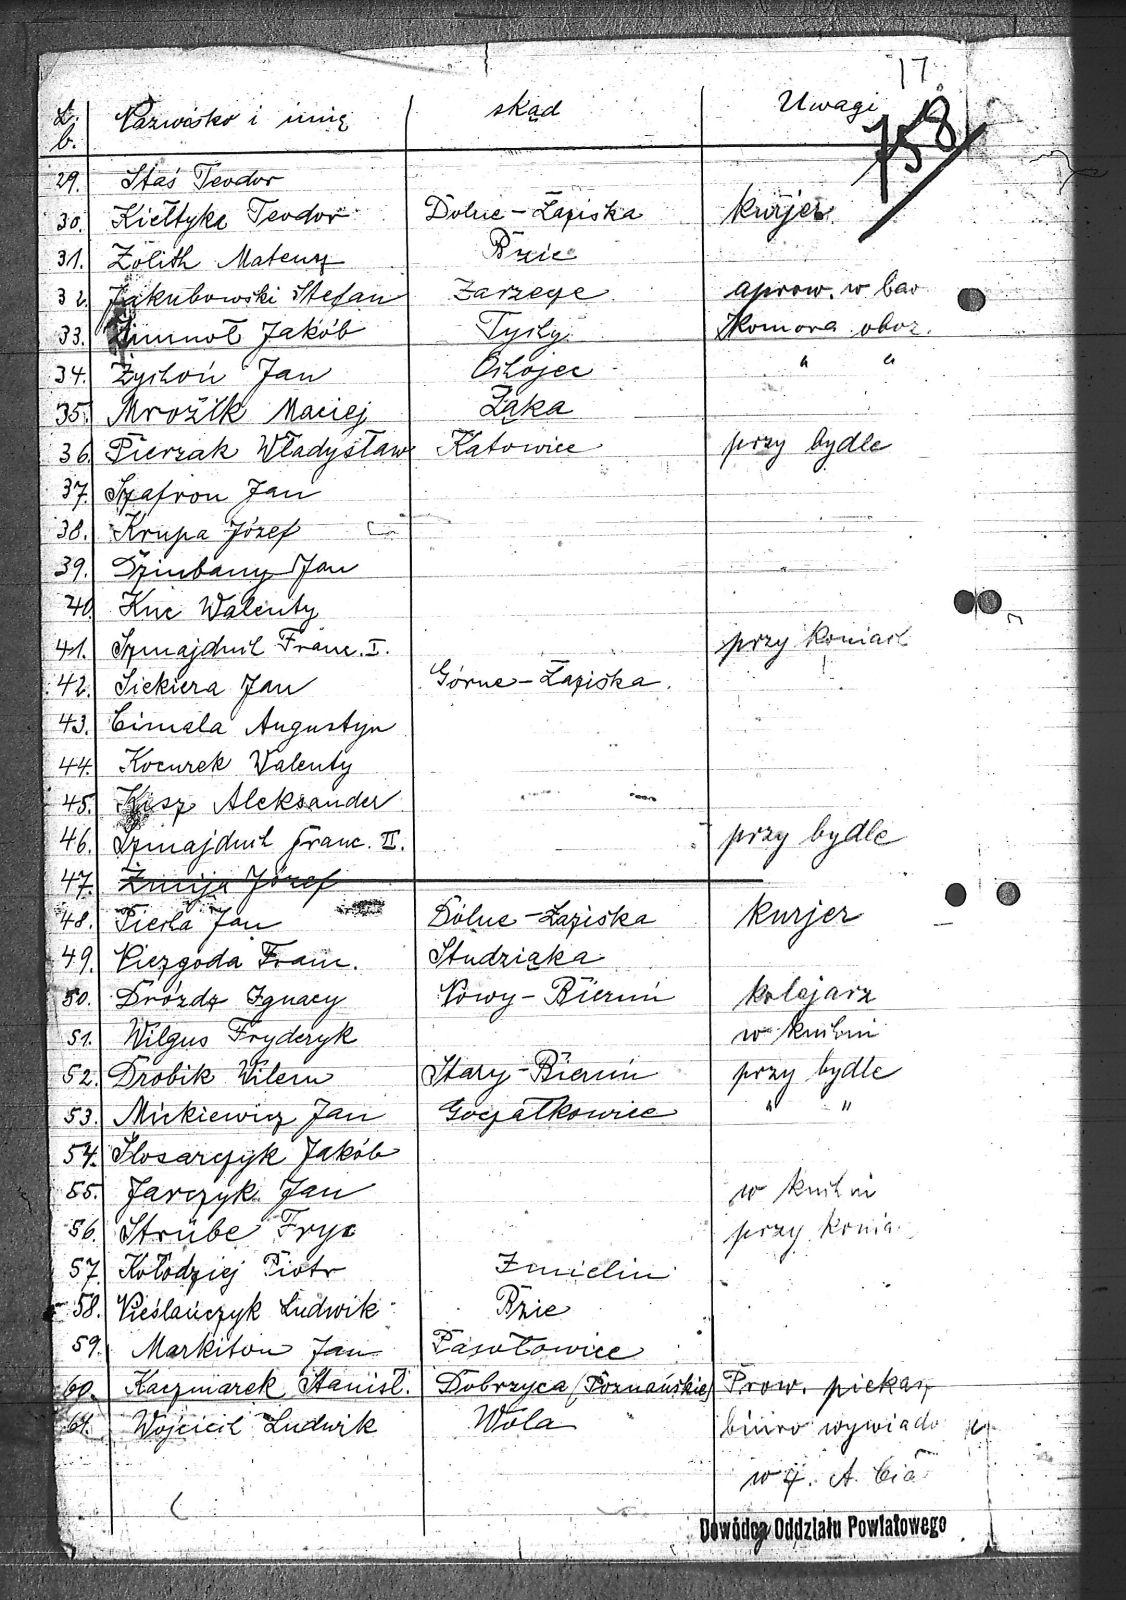 17.
758
L. b. Nazwisko i imię skąd Uwagi
29. Staś Teodor
30. Kiełtyka Teodor Dolne-Łaziska kurjer
31. Zölith Mateusz Bzie
32. Jakubowski Stefan Zarzeye aprow. w
33. Jakób Tychy Komora oboz.
34. Żychoń Jan Ochojec " "
35. Mrozik Maciej Łąka
36. Pierzak Władysław Katowice przy bydle
37. Szafron Jan
38. Krupa Józef
39. Dziubany Jan
40. Kuc Walenty
41. Szmajduch Franc. I. przy koniach
42. Siekiera Jan Górne-Łaziska.
43. Cimala Augustyn
44. Kocurek Walenty
45. Kisz Aleksander
46. Szmajduch Franc. II. przy bydle
47. Żmija Józef
48. Piecha Jan Dolne-Łaziska kurjer
49. Niezgoda Franc. Studziąka
50. Dróżdż Ignacy Nowy-Bieruń kolejarz
51. Wilgus Fryderyk w kuchni
52. Drobik Wilem Stary-Bieruń przy bydle
53. Mickiewicz Jan Goczałkowice " "
54. Ślosarczyk Jakób
55. Jarczyk Jan w kuchni
56. Strübe Fryc przy konia
57. Kołodziej Piotr Imielin
58. Cieślańczyk Ludwik Bzie
59. Markiton Jan Pasołowice
60. Kaczmarek Stanisł. Dobrzyca (Poznańskie) Prow. piekarz
61. Wojcich Ludwik Wola biuro wywiado
w 4. A.
Dowódca Oddziału Powiatowego